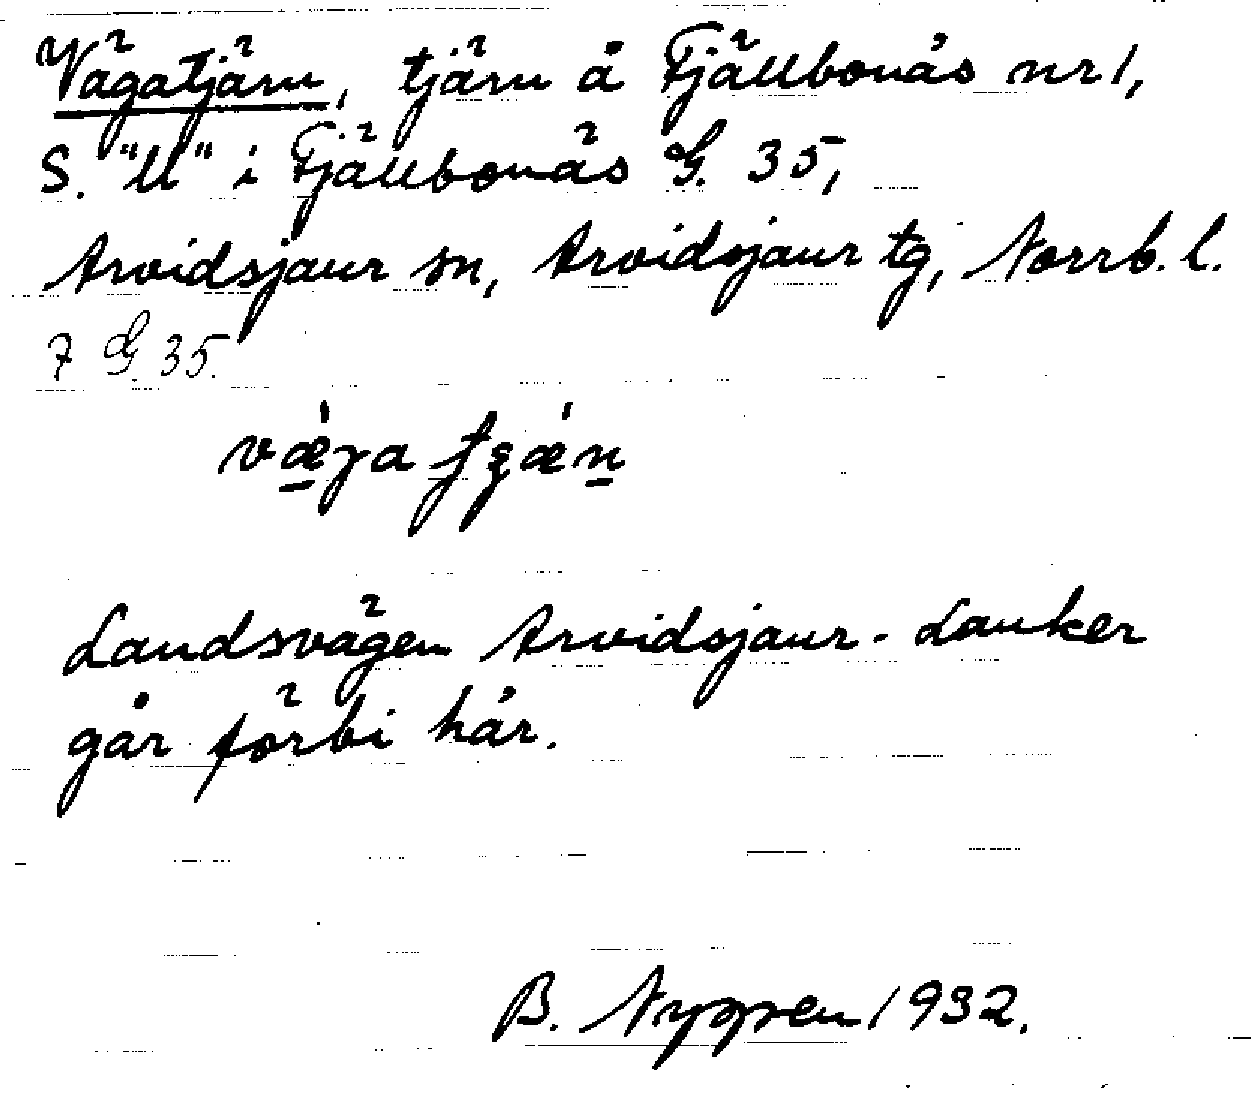 Vägatjärn, tjärn å Fjällbonäs nr 1,
S. "ll" i Fjällbonäs G. 35,
Arvidsjaur sn, Arvidsjaur tg, Norrb. l.
7 G 35.
Landsvägen Arvidsjaur - Lauker
går förbi här.
B. Nyppen 1932.